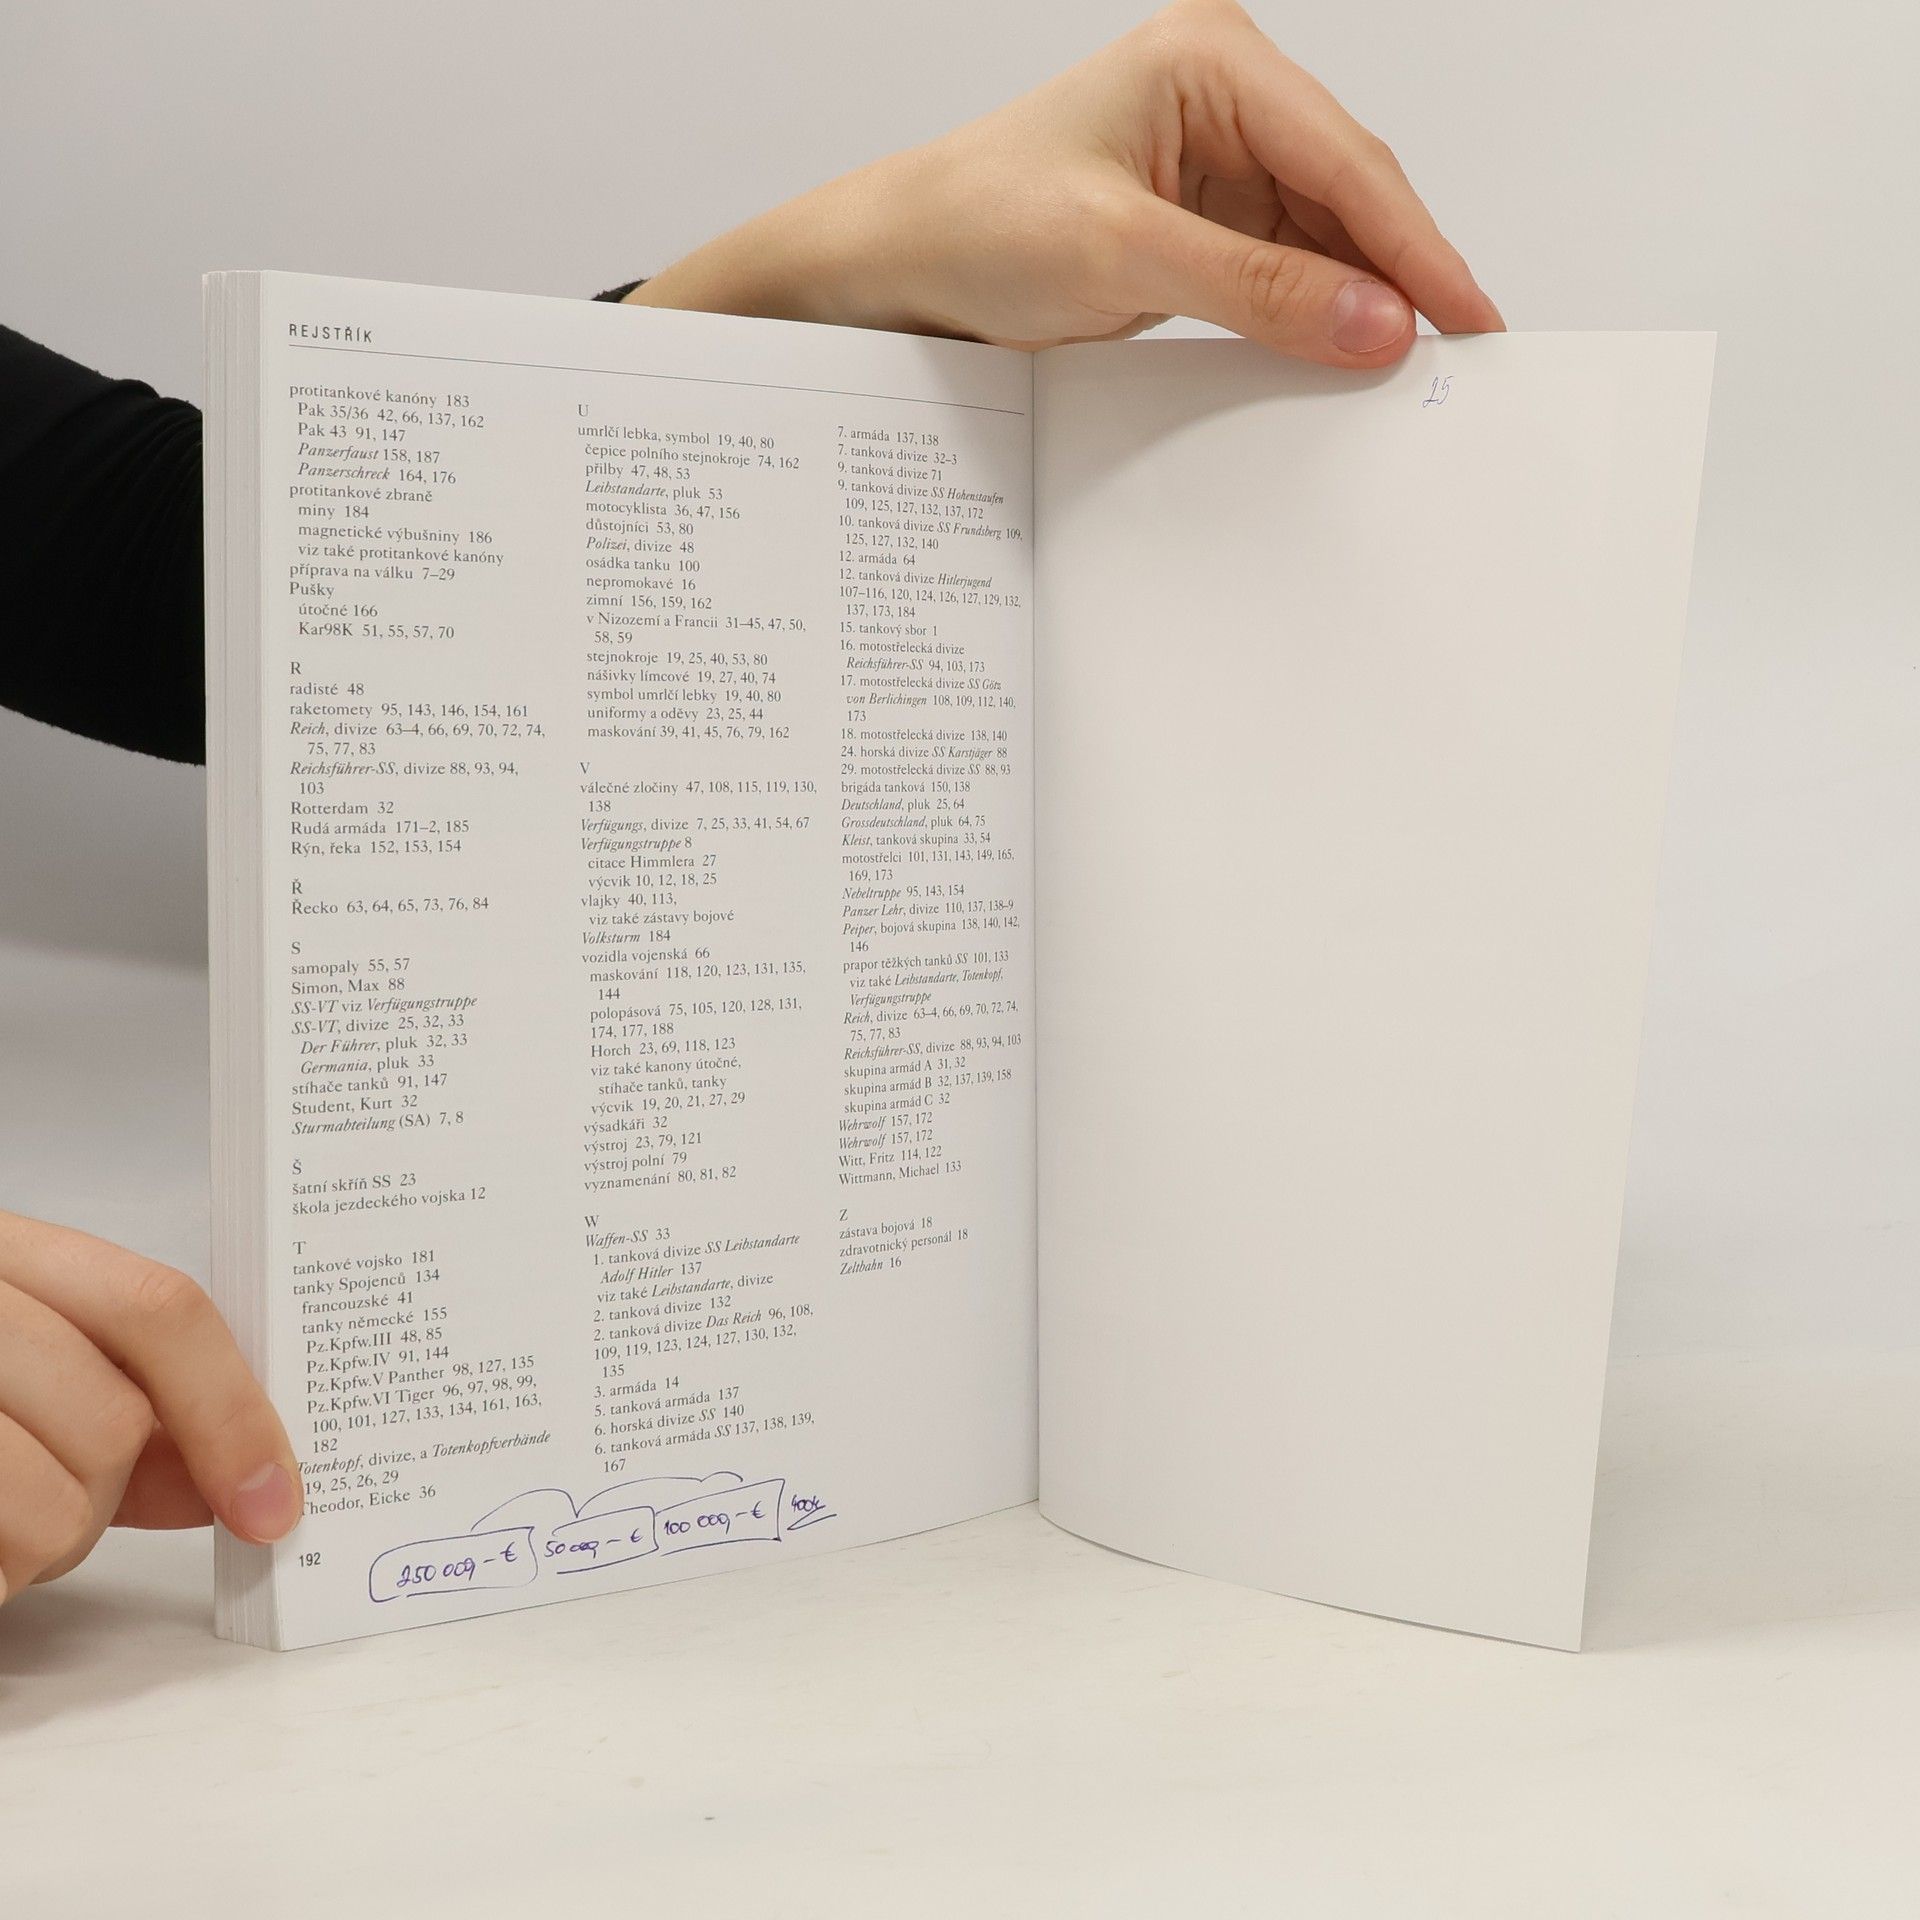 REJSTŘÍK
protitankové kanóny 183
Pak 35/36 42, 66, 137, 162
Pak 43 91, 147
Panzerfaust 158, 187
Panzerschreck 164, 176
protitankové zbraně
miny 184
magnetické výbušniny 186
viz také protitankové kanóny
příprava na válku 7–29
Pušky
útočné 166
Kar98K 51, 55, 57, 70
R
radisté 48
raketomety 95, 143, 146, 154, 161
Reich, divize 63–4, 66, 69, 70, 72, 74,
75, 77, 83
Reichsführer-SS, divize 88, 93, 94,
103
Rotterdam 32
Rudá armáda 171–2, 185
Rýn, řeka 152, 153, 154
Ř
Řecko 63, 64, 65, 73, 76, 84
S
samopaly 55, 57
Simon, Max 88
SS-VT viz Verfügungstruppe
SS-VT, divize 25, 32, 33
Der Führer, pluk 32, 33
Germania, pluk 33
stíhače tanků 91, 147
Student, Kurt 32
Sturmabteilung (SA) 7, 8
Š
šatní skříň SS 23
škola jezdeckého vojska 12
T
tankové vojsko 181
tanky Spojenců 134
francouzské 41
tanky německé 155
Pz.Kpfw.III 48, 85
Pz.Kpfw.IV 91, 144
Pz.Kpfw.V Panther 98, 127, 135
Pz.Kpfw.VI Tiger 96, 97, 98, 99,
100, 101, 127, 133, 134, 161, 163,
182
Totenkopf, divize, a Totenkopfverbände
19, 25, 26, 29
Theodor, Eicke 36
192
U
umrlčí lebka, symbol 19, 40, 80
čepice polního stejnokroje 74, 162
přilby 47, 48, 53
Leibstandarte, pluk 53
motocyklista 36, 47, 156
důstojníci 53, 80
Polizei, divize 48
osádka tanku 100
nepromokavé 16
zimní 156, 159, 162
v Nizozemí a Francii 31–45, 47, 50,
58, 59
stejnokroje 19, 25, 40, 53, 80
nášivky límcové 19, 27, 40, 74
symbol umrlčí lebky 19, 40, 80
uniformy a oděvy 23, 25, 44
maskování 39, 41, 45, 76, 79, 162
V
válečné zločiny 47, 108, 115, 119, 130,
138
Verfügungs, divize 7, 25, 33, 41, 54, 67
Verfügungstruppe 8
citace Himmlera 27
výcvik 10, 12, 18, 25
vlajky 40, 113,
viz také zástavy bojové
Volksturm 184
vozidla vojenská 66
maskování 118, 120, 123, 131, 135,
144
polopásová 75, 105, 120, 128, 131,
174, 177, 188
Horch 23, 69, 118, 123
viz také kanony útočné,
stíhače tanků, tanky
výcvik 19, 20, 21, 27, 29
výsadkáři 32
výstroj 23, 79, 121
výstroj polní 79
vyznamenání 80, 81, 82
W
Waffen-SS 33
1. tanková divize SS Leibstandarte
Adolf Hitler 137
viz také Leibstandarte, divize
2. tanková divize 132
2. tanková divize Das Reich 96, 108,
109, 119, 123, 124, 127, 130, 132,
135
3. armáda 14
5. tanková armáda 137
6. horská divize SS 140
6. tanková armáda SS 137, 138, 139,
167
7. armáda 137, 138
7. tanková divize 32–3
9. tanková divize 71
9. tanková divize SS Hohenstaufen
109, 125, 127, 132, 137, 172
10. tanková divize SS Frundsberg 109,
125, 127, 132, 140
12. armáda 64
12. tanková divize Hitlerjugend
107–116, 120, 124, 126, 127, 129, 132,
137, 173, 184
15. tankový sbor 1
16. motostřelecká divize
Reichsführer-SS 94, 103, 173
17. motostřelecká divize SS Götz
von Berlichingen 108, 109, 112, 140,
173
18. motostřelecká divize 138, 140
24. horská divize SS Karstjäger 88
29. motostřelecká divize SS 88, 93
brigáda tanková 150, 138
Deutschland, pluk 25, 64
Grossdeutschland, pluk 64, 75
Kleist, tanková skupina 33, 54
motostřelci 101, 131, 143, 149, 165,
169, 173
Nebeltruppe 95, 143, 154
Panzer Lehr, divize 110, 137, 138–9
Peiper, bojová skupina 138, 140, 142,
146
prapor těžkých tanků SS 101, 133
viz také Leibstandarte, Totenkopf,
Verfügungstruppe
Reich, divize 63–4, 66, 69, 70, 72, 74,
75, 77, 83
Reichsführer-SS, divize 88, 93, 94, 103
skupina armád A 31, 32
skupina armád B 32, 137, 139, 158
skupina armád C 32
Wehrwolf 157, 172
Wehrwolf 157, 172
Witt, Fritz 114, 122
Wittmann, Michael 133
Z
zástava bojová 18
zdravotnický personál 18
Zeltbahn 16
250 000,– € 50 000,– € 100 000,– € 400k
25